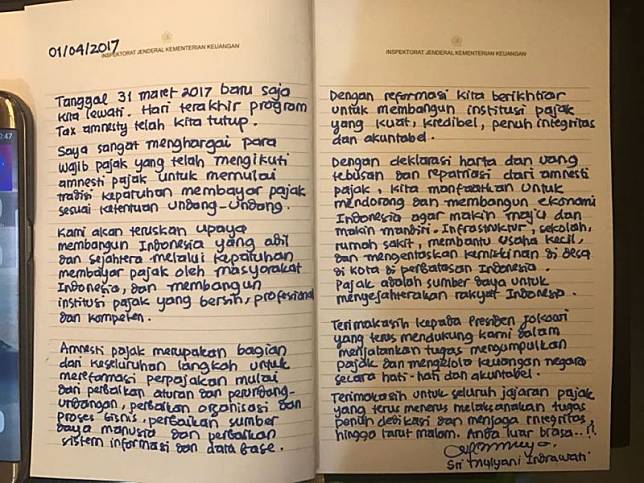 01/04/2017
INSPEKTORAT JENDERAL KEMENTERIAN KEUANGAN
Tanggal 31 maret 2017 baru saja
kita lewati. Hari terakhir program
Tax amnesty telah kita tutup.
Saya sangat menghargai para
wajib pajak yang telah mengikuti
amnesti pajak untuk memulai
tradisi kepatuhan membayar pajak
sesuai ketentuan undang-undang.
Kami akan teruskan upaya
membangun Indonesia yang adil
dan sejahtera melalui kepatuhan
membayar pajak oleh masyarakat
Indonesia, dan membangun
institusi pajak yang bersih, profesional
dan kompeten.
Amnesti pajak merupakan bagian
dari keseluruhan langkah untuk
mereformasi perpajakan mulai
dari perbaikan aturan dan perundang-
undangan, perbaikan organisasi dan
proses bisnis, perbaikan sumber
daya manusia dan perbaikan
sistem informasi dan data base.
INSPEKTORAT JENDERAL KEMENTERIAN KEUANGAN
Dengan reformasi kita berikhtiar
untuk membangun institusi pajak
yang kuat, kredibel, penuh integritas
dan akuntabel.
Dengan deklarasi harta dan uang
tebusan dan repatriasi dari amnesti
pajak, kita manfaatkan untuk
mendorong dan membangun ekonomi
Indonesia agar makin maju dan
makin mandiri. Infrastruktur, sekolah,
rumah sakit, membantu usaha kecil,
dan mengentaskan kemiskinan di desa
di kota di perbatasan Indonesia.
Pajak adalah sumber daya untuk
menyejahterakan rakyat Indonesia.
Terimakasih kepada Presiden Jokowi
yang terus mendukung kami dalam
menjalankan tugas mengumpulkan
pajak dan mengelola keuangan negara
secara hati-hati dan akuntabel.
Terimakasih untuk seluruh jajaran pajak
yang terus menerus melaksanakan tugas
penuh dedikasi dan menjaga integritas
hingga larut malam. Anda luar biasa..!!
Sri Mulyani Indrawati